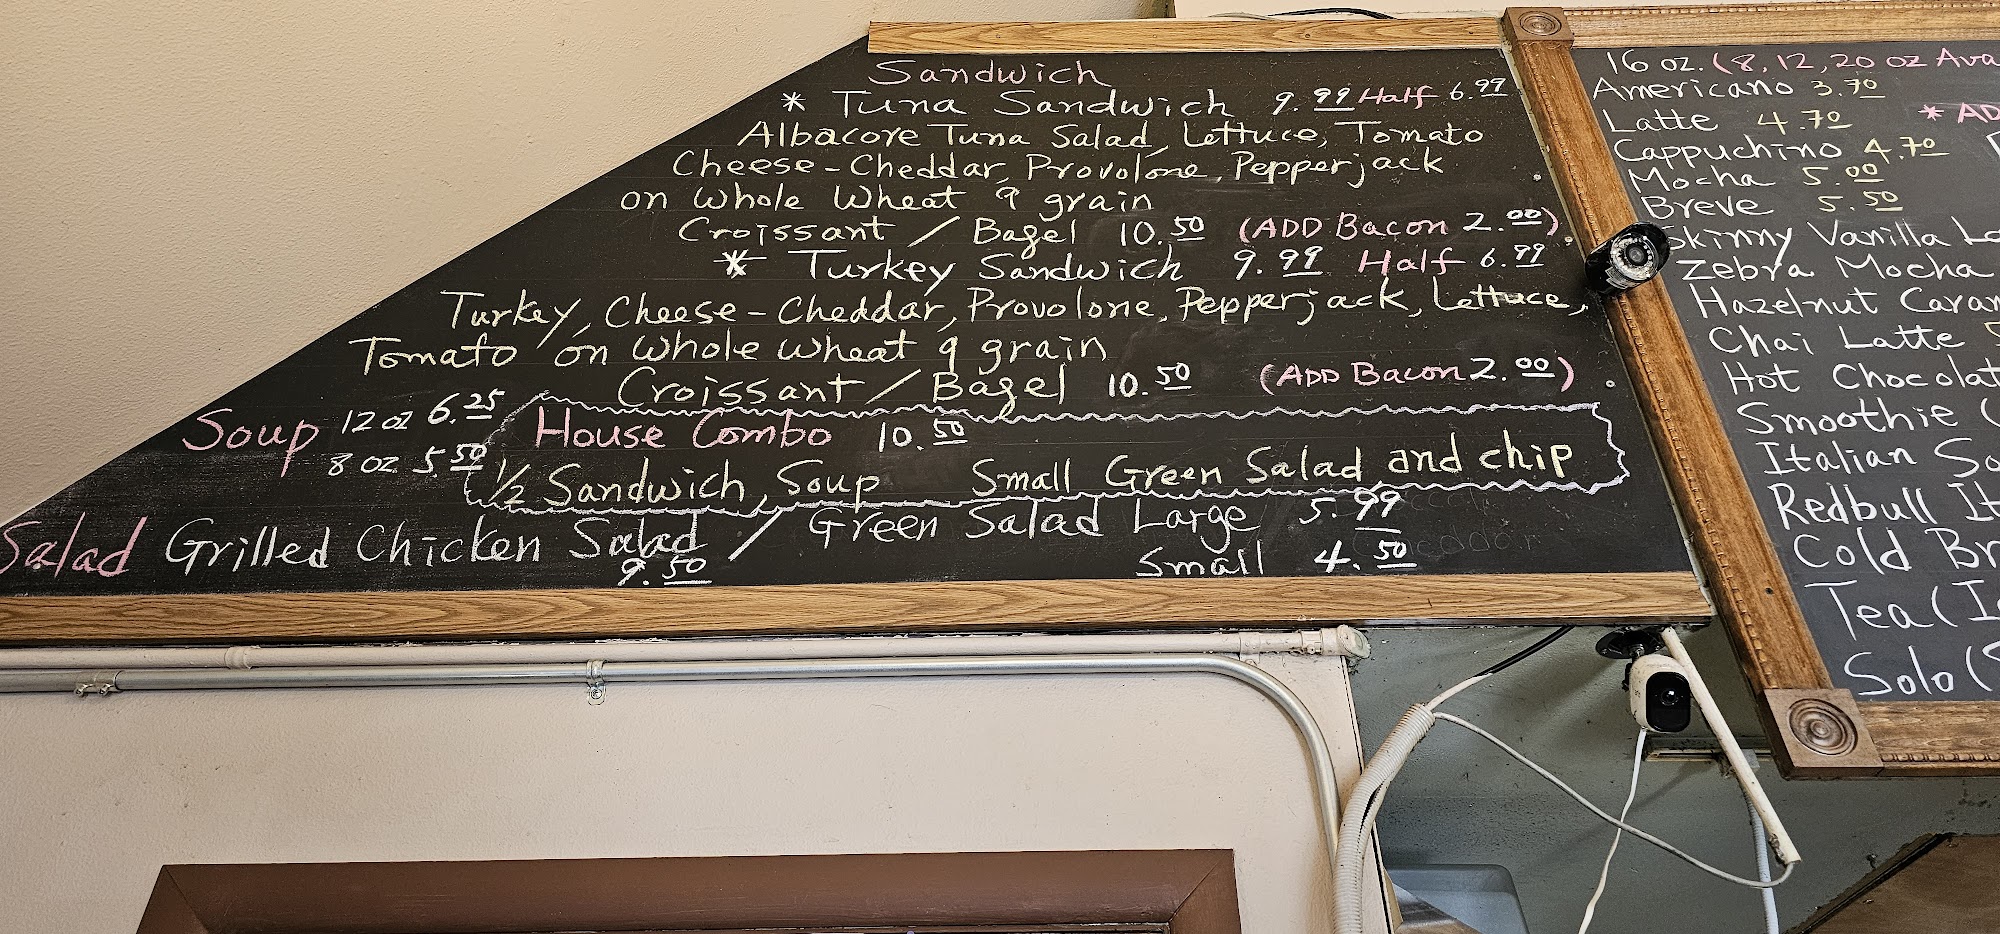 Sandwich
* Tuna Sandwich 9.99 Half 6.99
Albacore Tuna Salad, Lettuce, Tomato
Cheese - Cheddar, Provolone, Pepperjack
on Whole Wheat 9 grain
Croissant / Bagel 10.50 (ADD Bacon 2.00)
* Turkey Sandwich 9.99 Half 6.99
Turkey, Cheese - Cheddar, Provolone, Pepperjack, Lettuce,
Tomato on Whole Wheat 9 grain
Croissant / Bagel 10.50 (ADD Bacon 2.00)
Soup 12 oz 6.25
8 oz 5.50
House Combo 10.50
1/2 Sandwich, Soup Small Green Salad, and chip
Salad Grilled Chicken Salad / Green Salad Large 5.99
9.50 Small 4.50
16 oz. (8, 12, 20 oz
Americano 3.70
Latte 4.70 *
Cappuchino 4.70
Mocha 5.00
Breve 5.50
Skinny Vanilla
Zebra Mocha
Hazelnut
Chai Latte
Hot
Smoothie (
Italian
Redbull
Cold
Tea (
Solo (